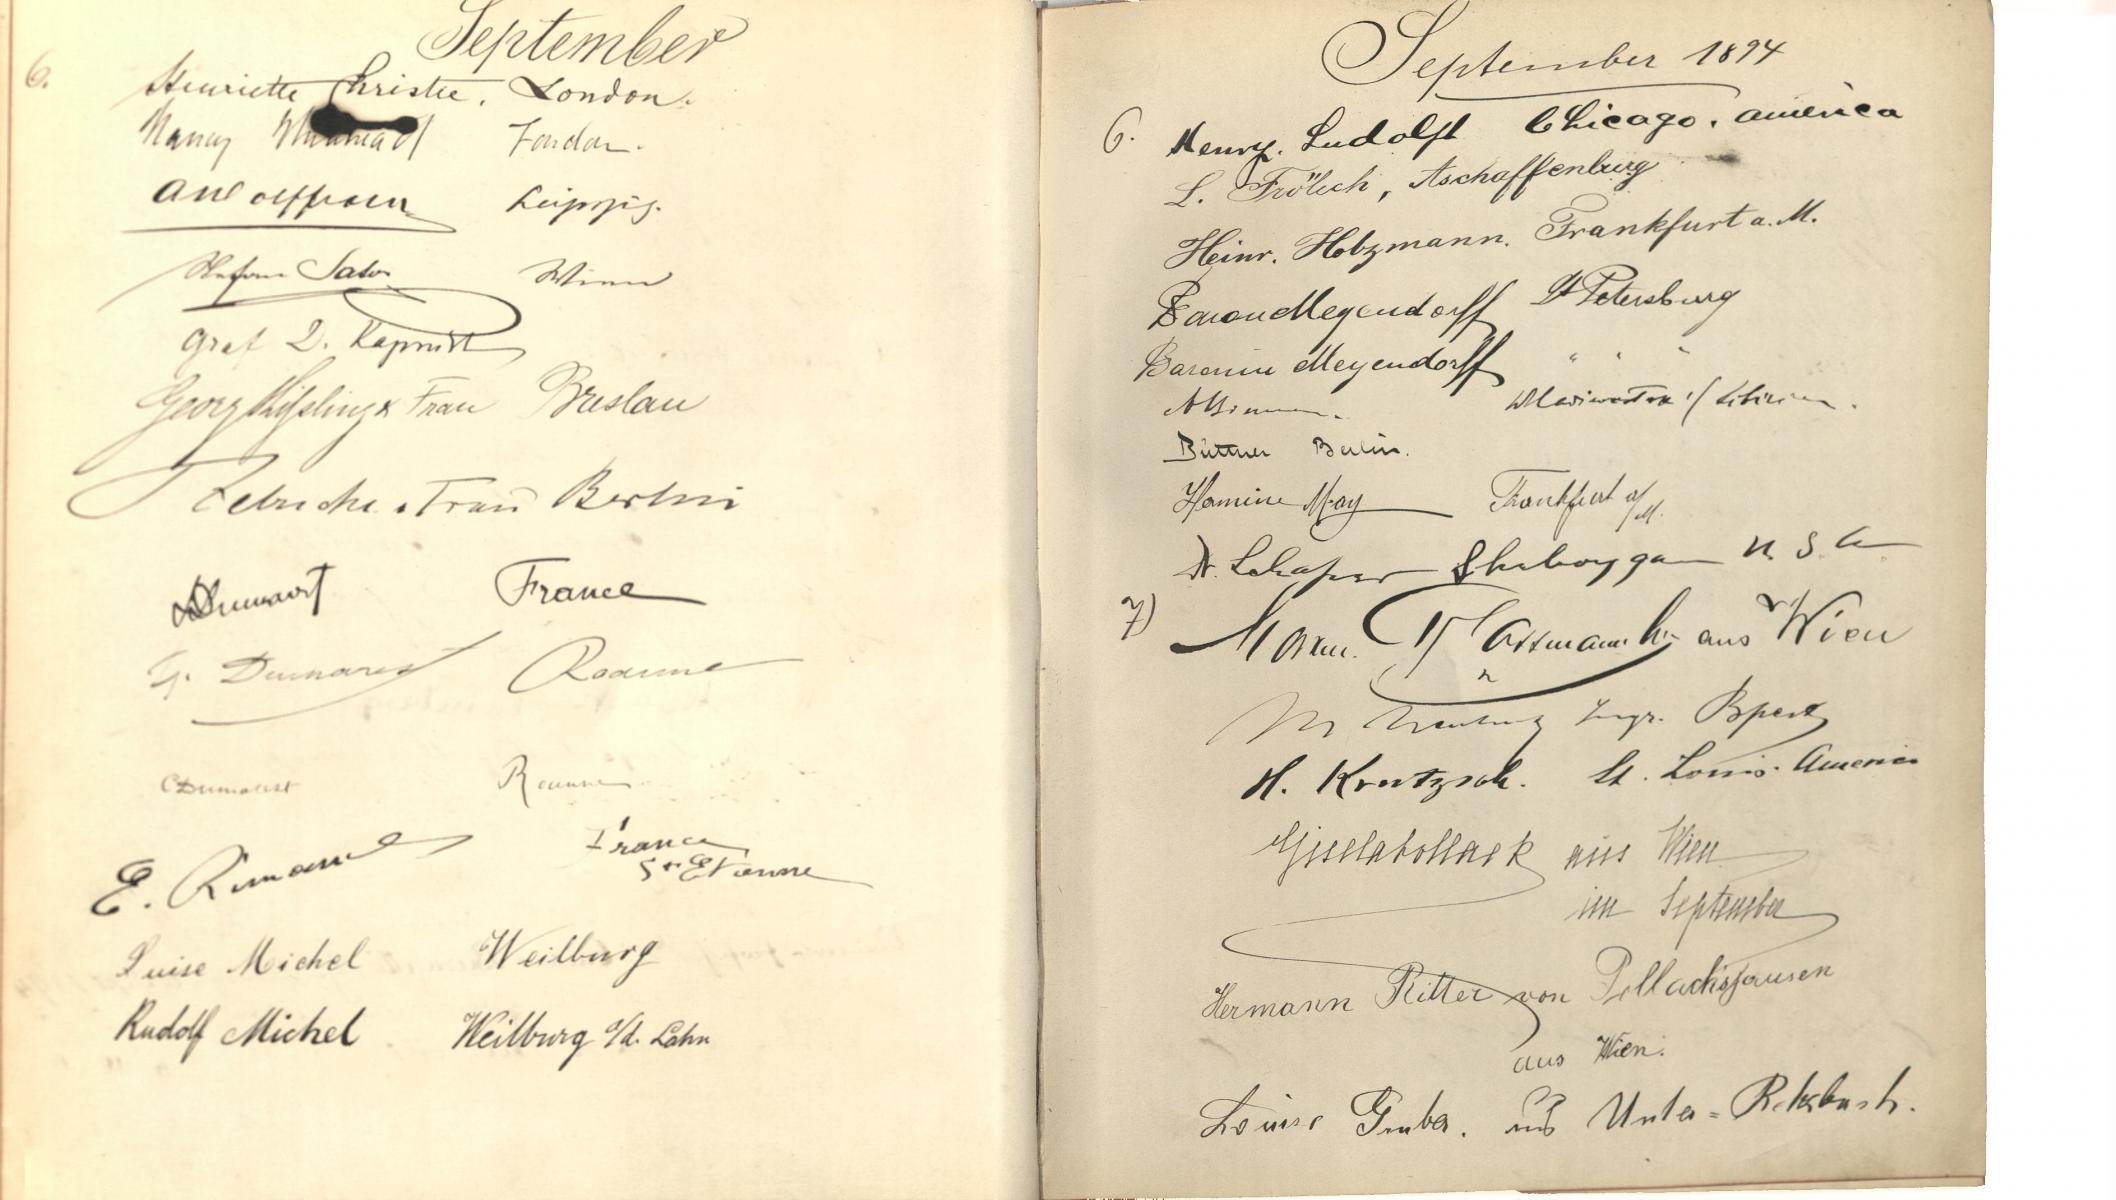 September
6.
Henriette Christie. London.
Nancy London.
Leipzig.
Wien
Graf D. Kapnist
Georg Kißling & Frau Breslau
Frau Berlin
Dumarest France
G. Dumarest Roanne
C Dumarest Roanne
E. France
St Etienne
Luise Michel Weilburg
Rudolf Michel Weilburg a/d. Lahn
September 1894
6. Henry. Ludolph Chicago. America
L. Frölich, Aschaffenburg
Heinr. Holzmann. Frankfurt a. M.
Baron Meyendorff St Petersburg
Baronin Meyendorff " " "
Büttner Berlin.
Hermine May Frankfurt a/M.
Dr. Schaper Sheboygan U. S. A
7) aus Wien
Ingr. Bpest
H. Kretzsch. St. Louis. America
Gisela Pollack aus Wien
im September
Hermann Ritter von
aus Wien.
Louise Gruber. aus Unter=